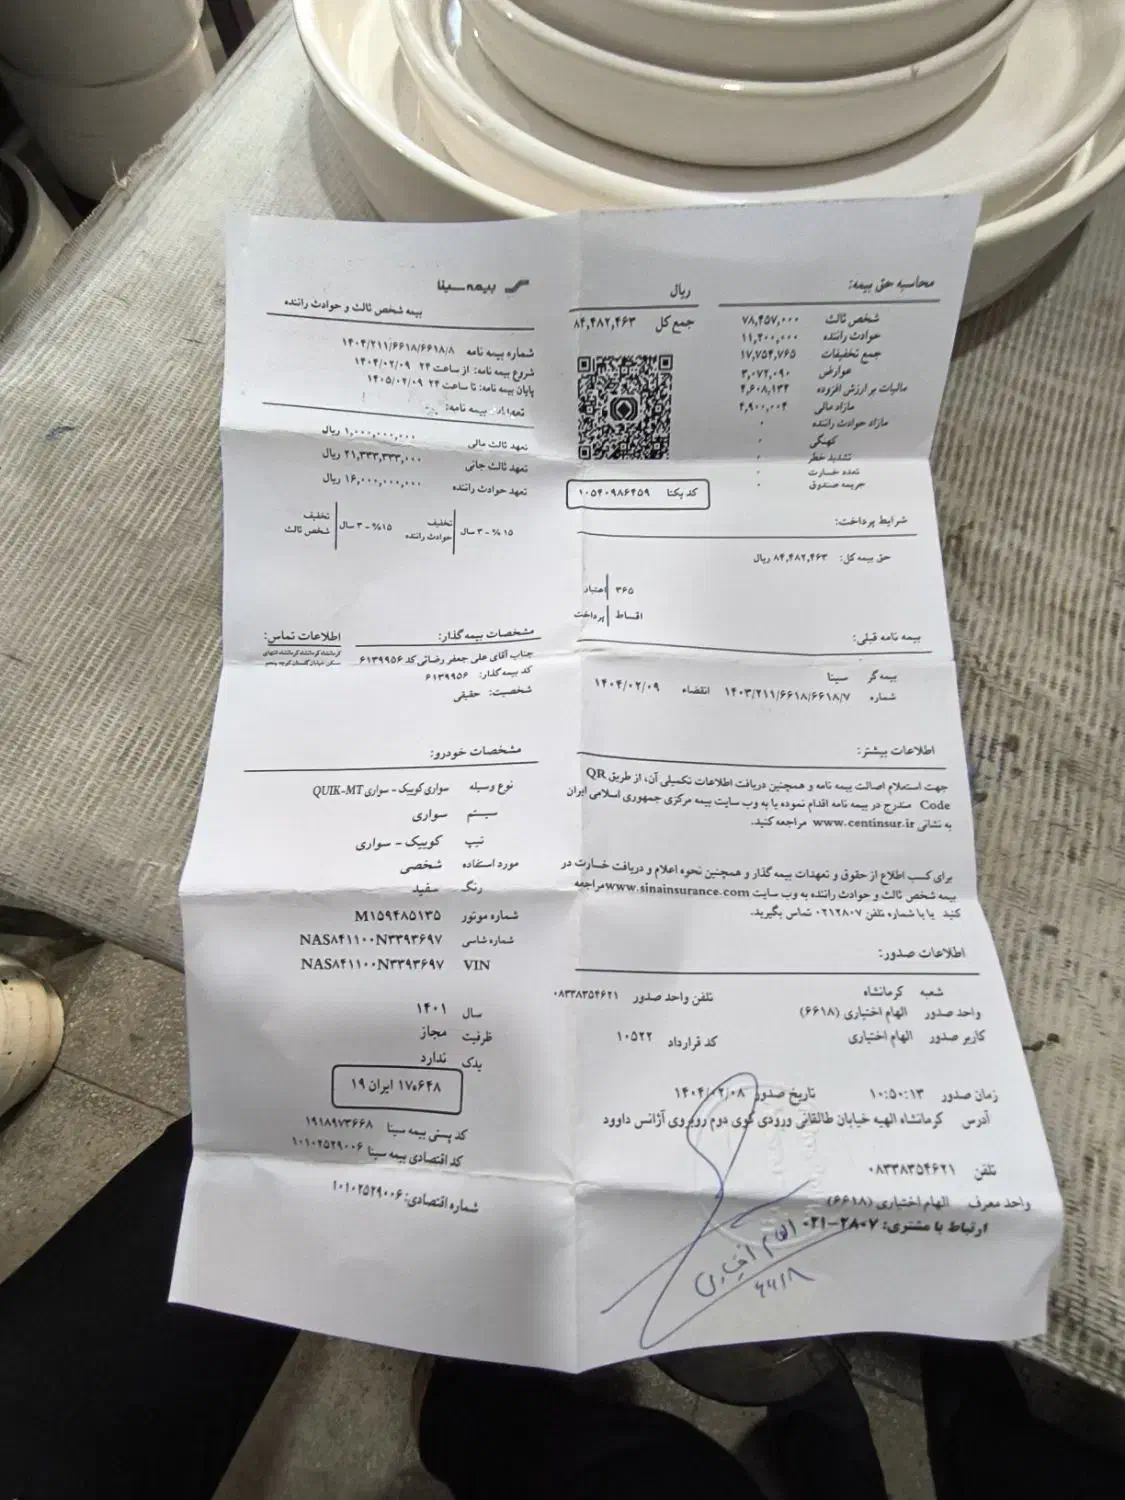 بیمه سینا
بیمه شخص ثالث و حوادث راننده
شماره بیمه نامه ۱۴۰۴/۲۱۱/۶۶۱۸/۶۶۱۸/۸
شروع بیمه نامه: از ساعت ۲۴ ۱۴۰۴/۰۲/۰۹
پایان بیمه نامه: تا ساعت ۲۴ ۱۴۰۵/۰۲/۰۹
تعهدات بیمه نامه:
تعهد ثالث مالی ۱,۰۰۰,۰۰۰,۰۰۰ ریال
تعهد ثالث جانی ۲۱,۳۳۳,۳۳۳,۰۰۰ ریال
تعهد حوادث راننده ۱۶,۰۰۰,۰۰۰,۰۰۰ ریال
تخفیف شخص ثالث ۱۵% - ۳ سال
تخفیف حوادث راننده ۱۵ % - ۳ سال
مشخصات بیمه گذار:
جناب آقای علی جعفر رضائی کد ۶۱۳۹۹۵۶
کد بیمه گذار: ۶۱۳۹۹۵۶
شخصیت: حقیقی
اطلاعات تماس:
کرمانشاه کرمانشاه کرمانشاه انتهای
مسکن خیابان گلستان کوچه پنجم
مشخصات خودرو:
نوع وسیله سواری کوییک - سواری QUIK-MT
سیستم سواری
تیپ کوییک - سواری
مورد استفاده شخصی
رنگ سفید
شماره موتور M۱۵۹۴۸۵۱۳۵
شماره شاسی NAS۸۴۱۱۰۰N۳۳۹۳۶۹۷
VIN NAS۸۴۱۱۰۰N۳۳۹۳۶۹۷
سال ۱۴۰۱
ظرفیت مجاز
یدک ندارد
۶۴۸ه۱۷ ایران ۱۹
کد پستی بیمه سینا ۱۹۱۸۹۷۳۶۶۸
کد اقتصادی بیمه سینا ۱۰۱۰۲۵۲۹۰۰۶
شماره اقتصادی: ۱۰۱۰۲۵۲۹۰۰۶
محاسبه حق بیمه:
ریال
شخص ثالث ۷۸,۴۵۷,۰۰۰
حوادث راننده ۱۱,۲۰۰,۰۰۰
جمع تخفیفات ۱۷,۷۵۴,۷۶۵
عوارض ۳,۰۷۲,۰۹۰
مالیات بر ارزش افزوده ۴,۶۰۸,۱۳۴
مازاد مالی ۴,۹۰۰,۰۰۴
مازاد حوادث راننده ۰
کهنگی ۰
تشدید خطر ۰
تعدد خسارت ۰
جریمه صندوق ۰
جمع کل ۸۴,۴۸۲,۴۶۳
کد یکتا ۱۰۵۴۰۹۸۶۴۵۹
شرایط پرداخت:
حق بیمه کل: ۸۴,۴۸۲,۴۶۳ ریال
اعتبار ۳۶۵
پرداخت اقساط
بیمه نامه قبلی:
بیمه گر سینا
شماره ۱۴۰۳/۲۱۱/۶۶۱۸/۶۶۱۸/۷ انقضاء ۱۴۰۴/۰۲/۰۹
اطلاعات بیشتر:
جهت استعلام اصالت بیمه نامه و همچنین دریافت اطلاعات تکمیلی آن، از طریق QR
Code مندرج در بیمه نامه اقدام نموده یا به وب سایت بیمه مرکزی جمهوری اسلامی ایران
به نشانی www.centinsur.ir مراجعه کنید.
برای کسب اطلاع از حقوق و تعهدات بیمه گذار و همچنین نحوه اعلام و دریافت خسارت در
بیمه شخص ثالث و حوادث راننده به وب سایت www.sinainsurance.com مراجعه
کنید یا با شماره تلفن ۰۲۱۲۸۰۷ تماس بگیرید.
اطلاعات صدور:
شعبه کرمانشاه تلفن واحد صدور ۰۸۳۳۸۳۵۴۶۲۱
واحد صدور الهام اختیاری (۶۶۱۸)
کاربر صدور الهام اختیاری کد قرارداد ۱۰۵۲۲
زمان صدور ۱۰:۵۰:۱۳ تاریخ صدور ۱۴۰۴/۰۲/۰۸
آدرس کرمانشاه الهیه خیابان طالقانی ورودی کوی دوم روبروی آژانس داوود
تلفن ۰۸۳۳۸۳۵۴۶۲۱
واحد معرف الهام اختیاری (۶۶۱۸)
ارتباط با مشتری: ۲۸۰۷-۰۲۱
الهام اختیاری
۶۶۱۸